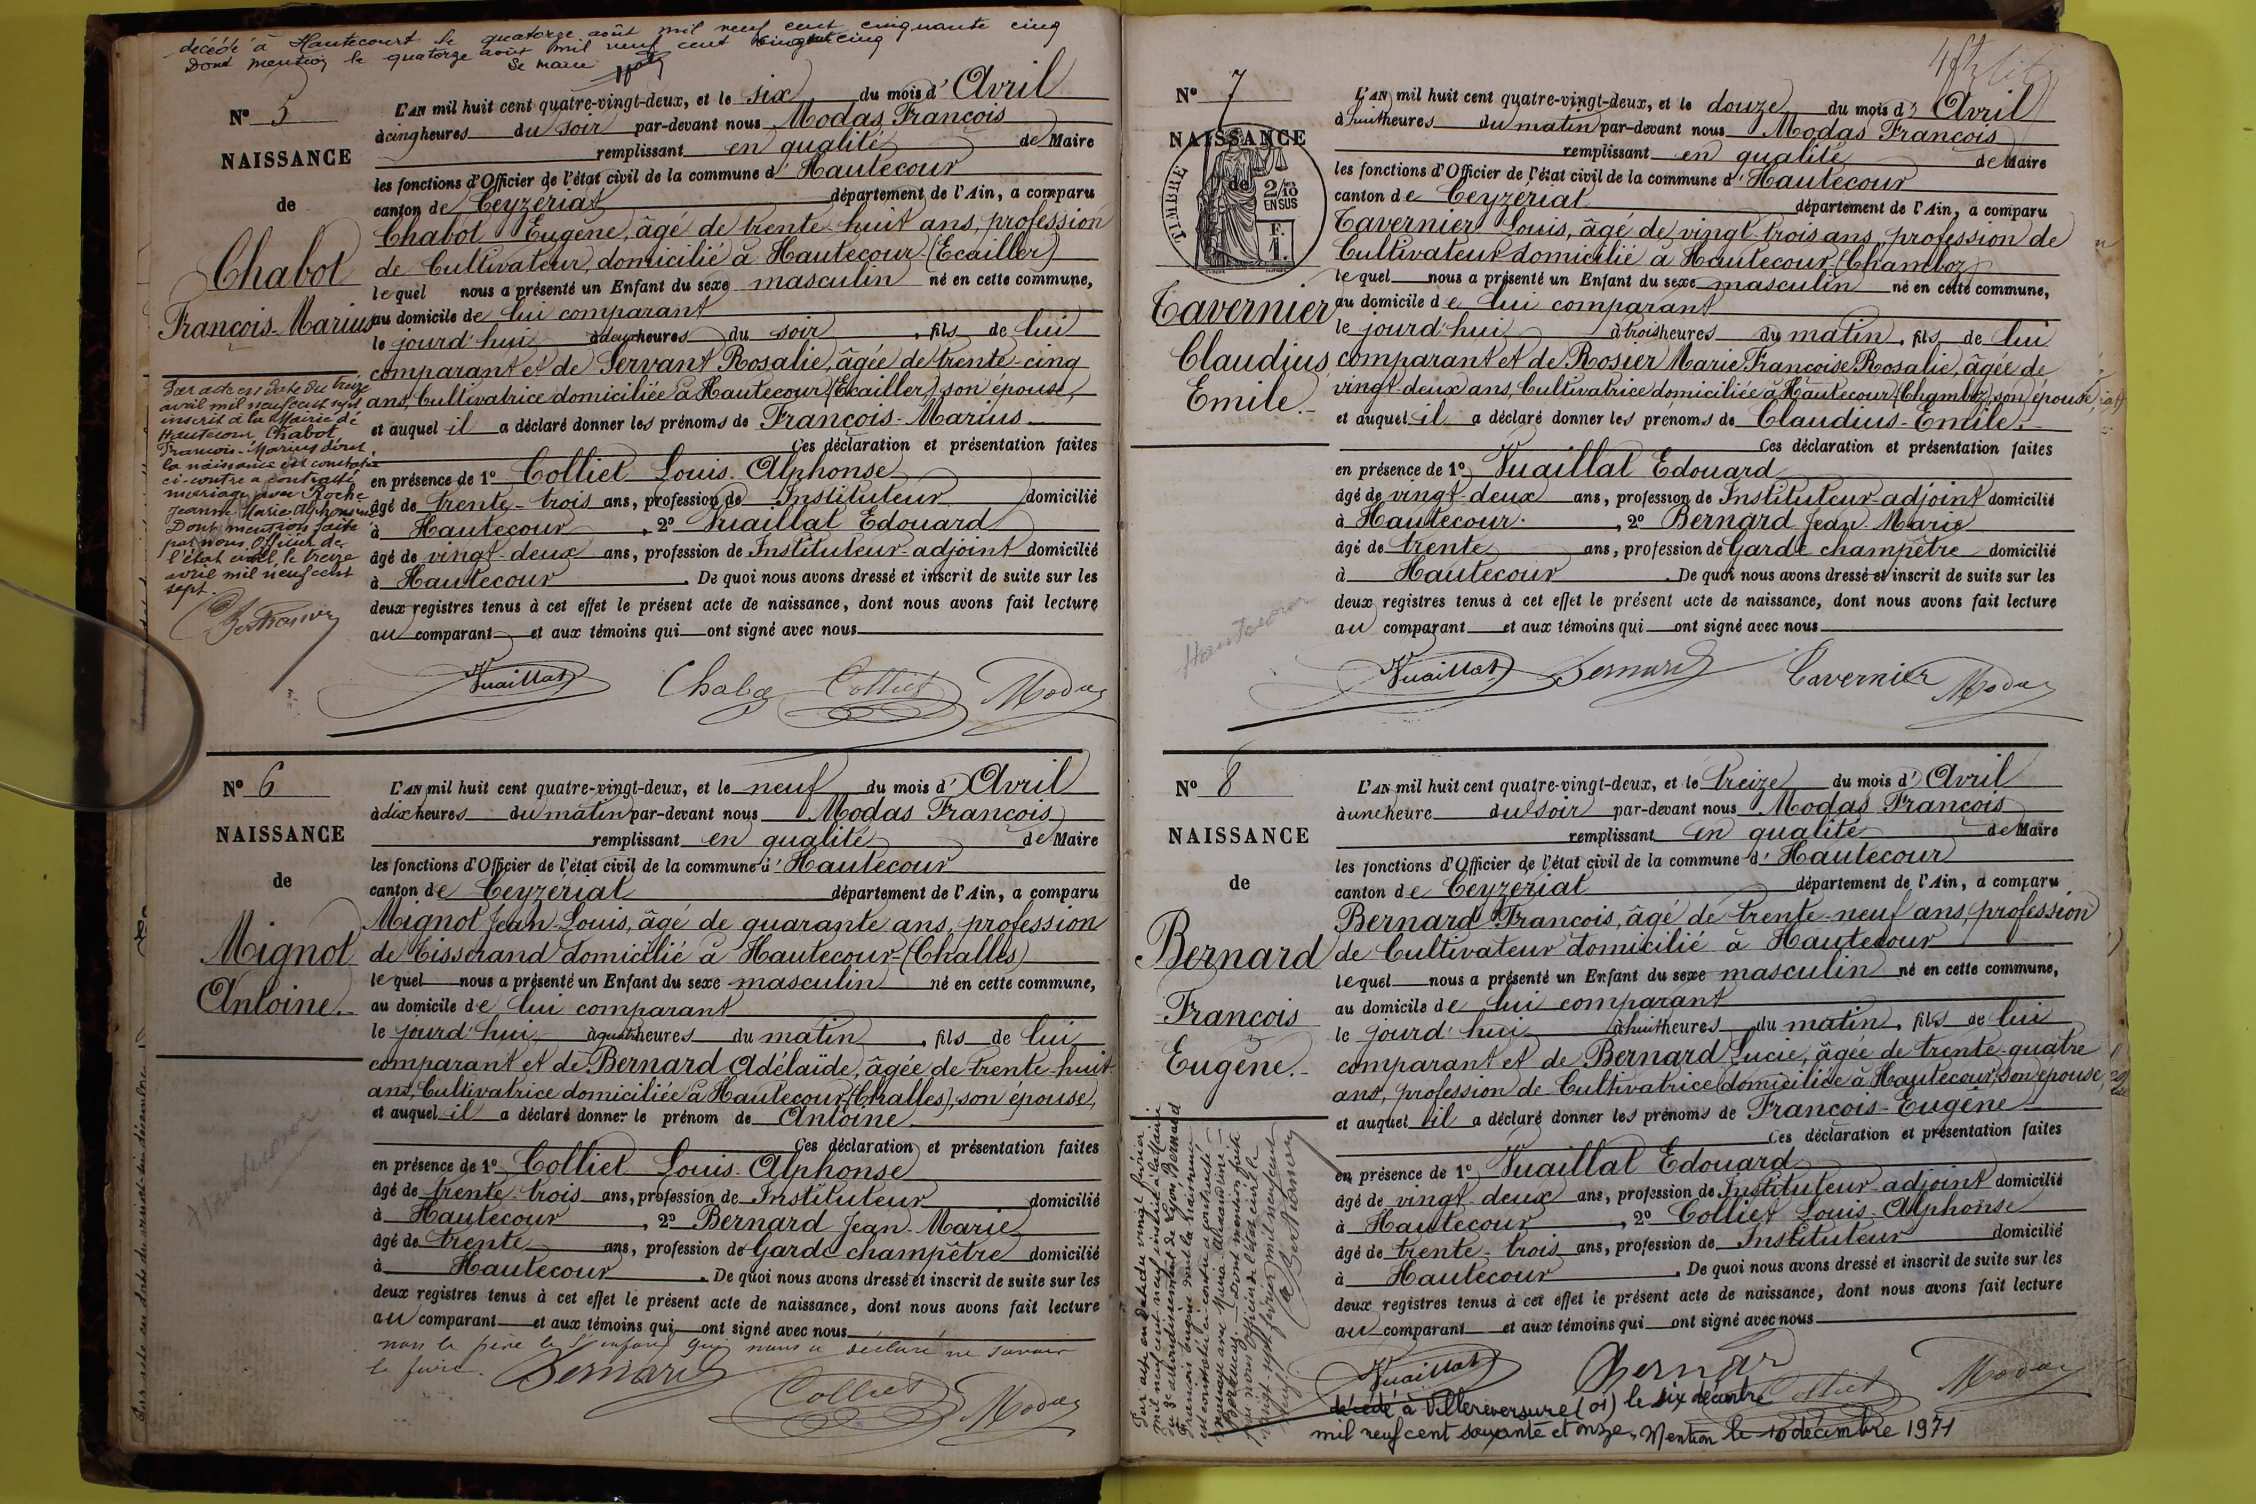 décédé à Hautecourt le quatorze août mil neuf cent cinquante cinq
Dont mention le quatorze août mil neuf cent cinquante cinq
Le maire
N° 5
NAISSANCE
de
Chabot
François-Marius
Par acte en date du treize
avril mil neuf cent sept
inscrit à la Mairie de
Hautecour Chabot
François-Marius dont
la naissance est constatée
ci-contre a contracté
mariage avec Roche
Jeanne Marie Alphonsine
Dont mention faite
par nous Officier de
l'état civil le treize
avril mil neuf cent
sept.
L'AN mil huit cent quatre-vingt-deux, et le six du mois d'Avril
à cinq heures du soir par-devant nous Modas François
remplissant en qualité de Maire
les fonctions d'Officier de l'état civil de la commune d'Hautecour
canton de Ceyzériat département de l'Ain, a comparu
Chabot Eugène, âgé de trente-huit ans, profession
de Cultivateur, domicilié à Hautecour-(Ecailler)
lequel nous a présenté un Enfant du sexe masculin né en cette commune,
au domicile de lui comparant
le jourd'hui à deux heures du soir, fils de lui
comparant et de Servant Rosalie, âgée de trente-cinq
ans, Cultivatrice domiciliée à Hautecour (Ecailler), son épouse,
et auquel il a déclaré donner les prénoms de François-Marius
Ces déclaration et présentation faites
en présence de 1° Colliet Louis-Alphonse
âgé de trente-trois ans, profession de Instituteur domicilié
à Hautecour, 2° Vuaillat Edouard
âgé de vingt-deux ans, profession de Instituteur-adjoint domicilié
à Hautecour. De quoi nous avons dressé et inscrit de suite sur les
deux registres tenus à cet effet le présent acte de naissance, dont nous avons fait lecture
au comparant et aux témoins qui ont signé avec nous
Vuaillat Chabot Colliet Modas
N° 6
NAISSANCE
de
Mignot
Antoine.
Hautecour
L'AN mil huit cent quatre-vingt-deux, et le neuf du mois d'Avril
à dix heures du matin par-devant nous Modas François
remplissant en qualité de Maire
les fonctions d'Officier de l'état civil de la commune d'Hautecour
canton de Ceyzériat département de l'Ain, a comparu
Mignot Jean-Louis, âgé de quarante ans, profession
de Tisserand domicilié à Hautecour-(Challes)
lequel nous a présenté un Enfant du sexe masculin né en cette commune,
au domicile de lui comparant
le jourd'hui à quatre heures du matin, fils de lui
comparant et de Bernard Adélaïde, âgée de trente-huit
ans, Cultivatrice domiciliée à Hautecour (Challes), son épouse,
et auquel il a déclaré donner le prénom de Antoine.
Ces déclaration et présentation faites
en présence de 1° Colliet Louis-Alphonse
âgé de trente-trois ans, profession de Instituteur domicilié
à Hautecour, 2° Bernard Jean-Marie
âgé de trente ans, profession de Garde champêtre domicilié
à Hautecour. De quoi nous avons dressé et inscrit de suite sur les
deux registres tenus à cet effet le présent acte de naissance, dont nous avons fait lecture
au comparant et aux témoins qui ont signé avec nous
non le père de l'enfant qui nous a déclaré ne savoir
le faire. Bernard
Colliet Modas
N° 7
NAISSANCE
de
TIMBRE
2/10 EN SUS
F. 1.
Tavernier
Claudius
Emile.
Hautecour
L'AN mil huit cent quatre-vingt-deux, et le douze du mois d'Avril
à huit heures du matin par-devant nous Modas François
remplissant en qualité de Maire
les fonctions d'Officier de l'état civil de la commune d'Hautecour
canton de Ceyzériat département de l'Ain, a comparu
Tavernier Louis, âgé de vingt-trois ans, profession de
Cultivateur domicilié à Hautecour (Chamboz)
lequel nous a présenté un Enfant du sexe masculin né en cette commune,
au domicile de lui comparant
le jourd'hui à trois heures du matin, fils de lui
comparant et de Rosier Marie Françoise Rosalie, âgée de
vingt-deux ans, Cultivatrice domiciliée à Hautecour (Chamboz), son épouse,
et auquel il a déclaré donner les prénoms de Claudius-Emile.
Ces déclaration et présentation faites
en présence de 1° Vuaillat Edouard
âgé de vingt-deux ans, profession de Instituteur-adjoint domicilié
à Hautecour, 2° Bernard Jean-Marie
âgé de trente ans, profession de Garde champêtre domicilié
à Hautecour. De quoi nous avons dressé et inscrit de suite sur les
deux registres tenus à cet effet le présent acte de naissance, dont nous avons fait lecture
au comparant et aux témoins qui ont signé avec nous
Vuaillat Bernard Tavernier Modas
N° 8
NAISSANCE
de
Bernard
François
Eugène.
Par acte en date du vingt février
mil neuf cent neuf inscrit à la Mairie
du 3e arrondissement de Lyon Bernard
François Eugène dont la naissance
est constatée ci-contre a contracté
mariage avec
Dont mention faite
par nous Officier de l'état civil le
vingt-sept février mil neuf cent
neuf.
L'AN mil huit cent quatre-vingt-deux, et le treize du mois d'Avril
à une heure du soir par-devant nous Modas François
remplissant en qualité de Maire
les fonctions d'Officier de l'état civil de la commune d'Hautecour
canton de Ceyzériat département de l'Ain, a comparu
Bernard François, âgé de trente-neuf ans, profession
de Cultivateur domicilié à Hautecour
lequel nous a présenté un Enfant du sexe masculin né en cette commune,
au domicile de lui comparant
le jourd'hui à huit heures du matin, fils de lui
comparant et de Bernard Lucie, âgée de trente-quatre
ans, profession de Cultivatrice domiciliée à Hautecour, son épouse,
et auquel il a déclaré donner les prénoms de François-Eugène
Ces déclaration et présentation faites
en présence de 1° Vuaillat Edouard
âgé de vingt-deux ans, profession de Instituteur-adjoint domicilié
à Hautecour, 2° Colliet Louis-Alphonse
âgé de trente-trois ans, profession de Instituteur domicilié
à Hautecour. De quoi nous avons dressé et inscrit de suite sur les
deux registres tenus à cet effet le présent acte de naissance, dont nous avons fait lecture
au comparant et aux témoins qui ont signé avec nous
Vuaillat Bernard Colliet Modas
décédé à Villereversure (01) le six décembre
mil neuf cent soixante et onze. Mention le 10 décembre 1971